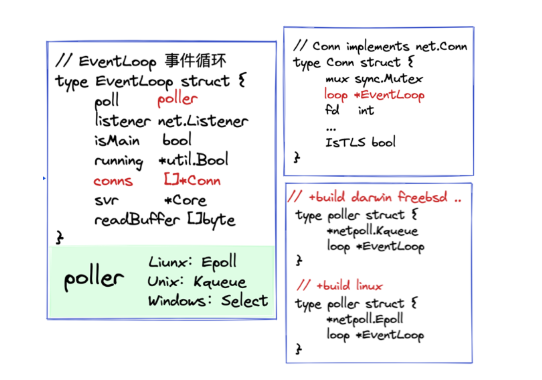 // EventLoop 事件循环
type EventLoop struct {
poll poller
listener net.Listener
isMain bool
running *util.Bool
conns []*Conn
svr *Core
readBuffer []byte
}
poller
Liunx: Epoll
Unix: Kqueue
Windows: Select
// Conn implements net.Conn
type Conn struct {
mux sync.Mutex
loop *EventLoop
fd int
...
IsTLS bool
}
// +build darwin freebsd ..
type poller struct {
*netpoll.Kqueue
loop *EventLoop
}
// +build linux
type poller struct {
*netpoll.Epoll
loop *EventLoop
}